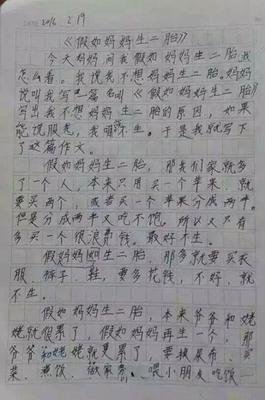 2016. 2. 19
《假如妈妈生二胎》
今天妈妈问我假如妈妈生二胎我
怎么看。我说我不想妈妈生二胎。妈妈
说叫我写一篇名叫《假如妈妈生二胎》
写出我不想妈妈生二胎的原因，如果
能说服我，我就不生。于是我就写下
了这篇作文。
假如妈妈生二胎，那我们家就多
了一个人，本来只用买一个苹果，就
要买两个，或者买一个苹果分成两半。
但是分成两半又吃不饱，所以又只有
多买一个很浪费钱。最好不生。
假妈妈如生二胎，那多就要买衣
服、裤子、鞋，要多花钱，不好，就
不生。
假如妈妈生二胎，本来爷爷和姥
姥就很累了，假如妈妈再生一个，那
爷爷和姥姥就更累了，要换尿布、
装、煮饭、做家务、喂小朋友吃饭